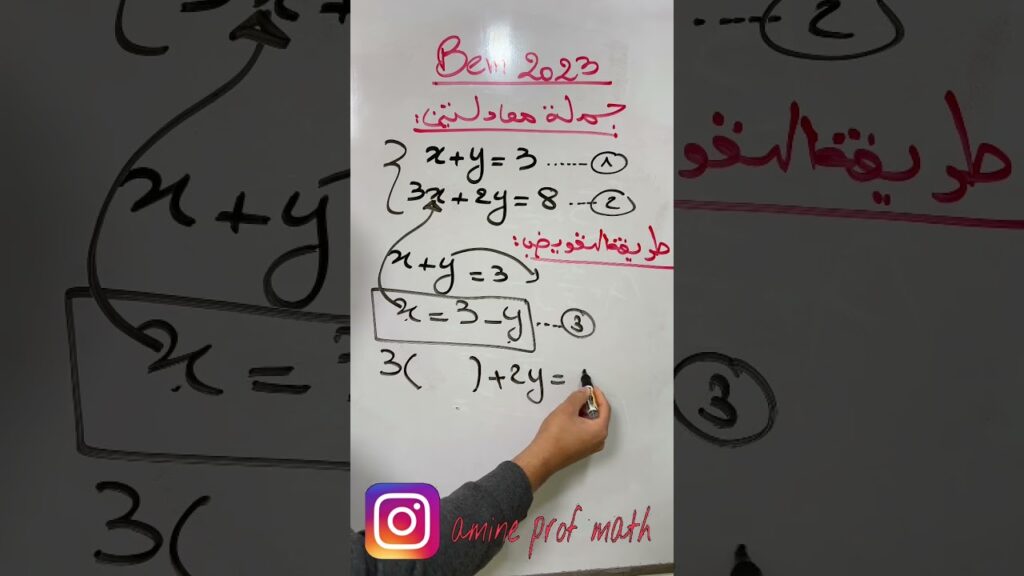 Bem 2023
جملة معادلتين:
x+y=3 ......①
3x+2y=8 ...②
طريقة التعويض:
x+y=3
x=3-y ....③
3(    )+2y=
amine prof math